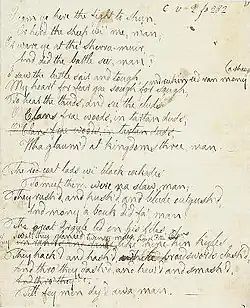 C v-2 p 282
O cam ye here the fight to shun,
Or herd the sheep wi' me, man,
Or were ye at the Sherra-muir,
And did the battle see, man;
I saw the battle sair and teugh,
And reekin red ran mony a sheugh
My heart for fear gae sough for sough,
To hear the thuds, and see the cluds
O' Clans frae woods, in tartan duds,
Wha glaum'd at kingdoms three, man.
The red-coat lads wi' black cockauds
To meet them were na slaw, man,
They rush'd, and push'd and blude outgush'd,
And mony a bouk did fa' man
The great Argyle led on his files
I wat they glanc'd twenty miles,
They hack'd and hash'd while braid swords clash'd,
And thro' they dash'd, and hew'd and smash'd,
Till fey men di'd awa man.